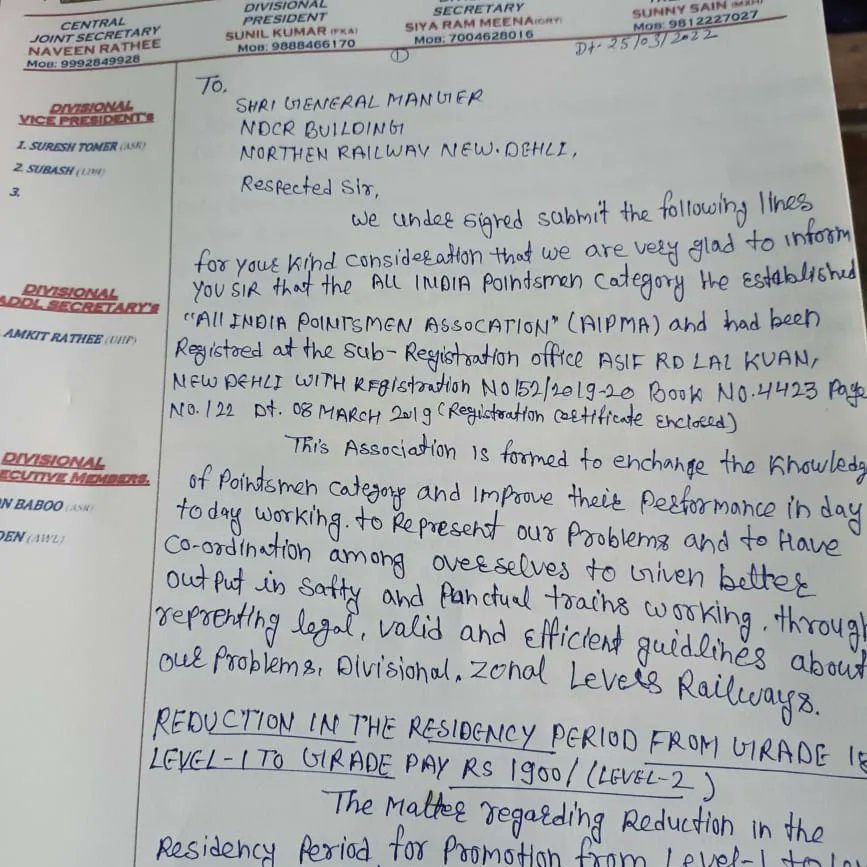 CENTRAL
JOINT SECRETARY
NAVEEN RATHEE
MOB: 9992849928
DIVISIONAL
PRESIDENT
SUNIL KUMAR (FKA)
MOB: 9888466170
SECRETARY
SIYA RAM MEENA (GRY)
MOB: 7004628016
SUNNY SAIN
MOB: 9812227027
1
Dt- 25/03/2022
DIVISIONAL
VICE PRESIDENT'S
1. SURESH TOMER (ASR)
2. SUBASH (LDH)
3.
DIVISIONAL
ADDL. SECRETARY'S
AMKIT RATHEE (UHF)
DIVISIONAL
ECUTIVE MEMBERS.
N BABOO (ASR)
DEN (AWL)
To,
SHRI GENERAL MANGER
NDCR BUILDING
NORTHEN RAILWAY NEW. DEHLI,
Respected Sir,
We under signed submit the following lines
for your kind consideration that we are very glad to inform
YOU SIR that the ALL INDIA Pointsmen Category the Established
"All INDIA POINTSMEN ASSOCATION" (AIPMA) and had been
Registred at the Sub-Registration office ASIF RD LAL KUAN,
NEW DEHLI WITH REGIstration NO 152/2019-20 Book NO.4423 Page
NO. 122 Dt. 08 MARCH 2019 (Registration certificate Enclosed)
This Association is formed to enchange the Knowledg
of Pointsmen category and Improve their Performance in day
today working. to Represent our Problems and to Have
Co-ordination among overselves to Given better
output in Safty and Panctual trains working. through
reprenting legal, valid and Efficient guidlines about
our Problems, Divisional, Zonal Levels Railways.
REDUCTION IN THE RESIDENCY PERIOD FROM GRADE 18
LEVEL-1 TO GRADE PAY RS 1900/ (LEVEL-2)
The Matter regarding Reduction in the
Residency Period for Promotion from Level-1 to